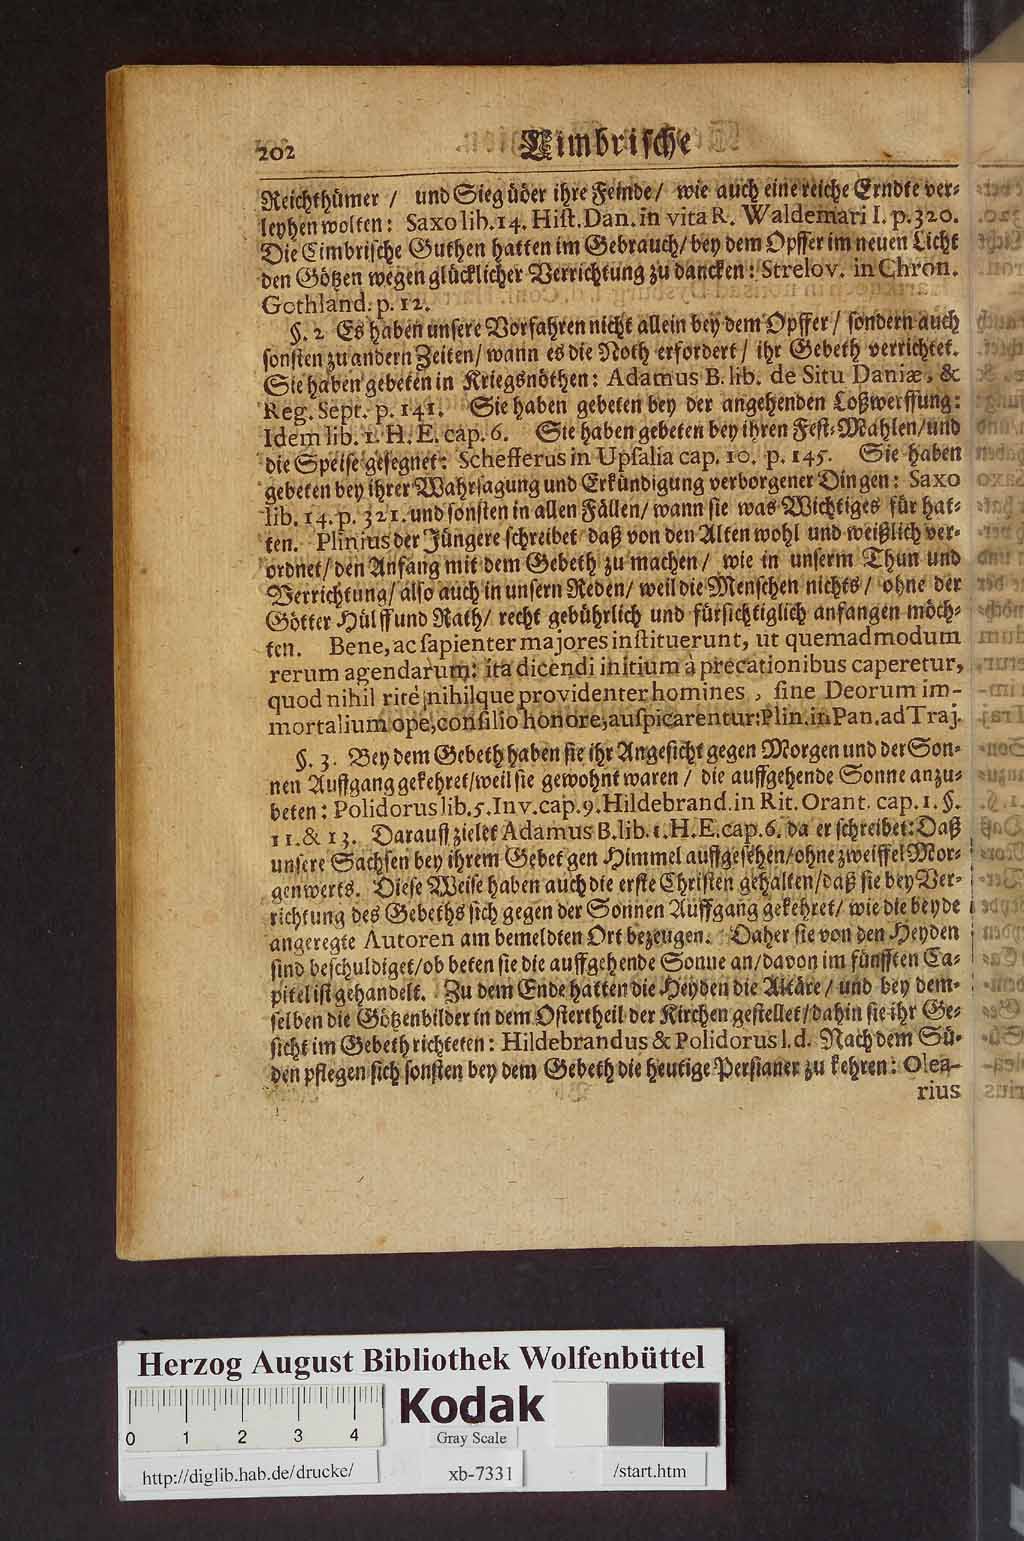 202 Cimbrische
Reichthümer / und Sieg über ihre Feinde / wie auch eine reiche Erndte ver-
leyhen wolten: Saxo lib. 14. Hist. Dan. in vita R. Waldemari I. p. 320.
Die Cimbrische Guthen hatten im Gebrauch / bey dem Opffer im neuen Licht
den Götzen wegen glücklicher Verrichtung zu dancken: Strelov. in Chron.
Gothland. p. 12.
§. 2 Es haben unsere Vorfahren nicht allein bey dem Opffer / sondern auch
sonsten zu andern Zeiten / wann es die Noth erfordert / ihr Gebeth verrichtet.
Sie haben gebeten in Kriegsnöthen: Adamus B. lib. de Situ Daniæ, &
Reg. Sept. p. 141. Sie haben gebeten bey der angehenden Loßwerffung:
Idem lib. 1. H. E. cap. 6. Sie haben gebeten bey ihren Fest-Mahlen / und
die Speise gesegnet: Schefferus in Upsalia cap. 10. p. 145. Sie haben
gebeten bey ihrer Wahrsagung und Erkündigung verborgener Dingen: Saxo
lib. 14. p. 321. und sonsten in allen Fällen / wann sie was Wichtiges für hat-
ten. Plinius der Jüngere schreibet daß von den Alten wohl und weißlich ver-
ordnet / den Anfang mit dem Gebeth zu machen / wie in unserm Thun und
Verrichtung / also auch in unsern Reden / weil die Menschen nichts / ohne der
Götter Hülff und Rath / recht gebührlich und fürsichtiglich anfangen möch-
ten. Bene, ac sapienter majores instituerunt, ut quemadmodum
rerum agendarum: ita dicendi initium à precationibus caperetur,
quod nihil ritè, nihilque providenter homines, sine Deorum im-
mortalium ope, consilio honore, auspicarentur: Plin. in Pan. ad Traj.
§. 3. Bey dem Gebeth haben sie ihr Angesicht gegen Morgen und der Son-
nen Auffgang gekehret / weil sie gewohnt waren / die auffgehende Sonne anzu-
beten: Polidorus lib. 5. Inv. cap. 9. Hildebrand. in Rit. Orant. cap. 1. §.
11. & 13. Darauff zielet Adamus B. lib. 1. H. E. cap. 6. da er schreibet: Daß
unsere Sachsen bey ihrem Gebet gen Himmel auffgesehen / ohne zweiffel Mor-
genwerts. Diese Weise haben auch die erste Christen gehalten / daß sie bey Ver-
richtung des Gebeths sich gegen der Sonnen Auffgang gekehret / wie die beyde
angeregte Autoren am bemeldten Ort bezeugen. Daher sie von den Heyden
sind beschuldiget / ob beten sie die auffgehende Sonne an / davon im fünfften Ca-
pitel ist gehandelt. Zu dem Ende hatten die Heyden die Altäre / und bey dem-
selben die Götzenbilder in dem Ostertheil der Kirchen gestellet / dahin sie ihr Ge-
sicht im Gebeth richteten: Hildebrandus & Polidorus l. d. Nach dem Sü-
den pflegen sich sonsten bey dem Gebeth die heutige Persianer zu kehren: Olea-
rius
Herzog August Bibliothek Wolfenbüttel
0 1 2 3 4
Kodak
Gray Scale
http://diglib.hab.de/drucke/ xb-7331 /start.htm